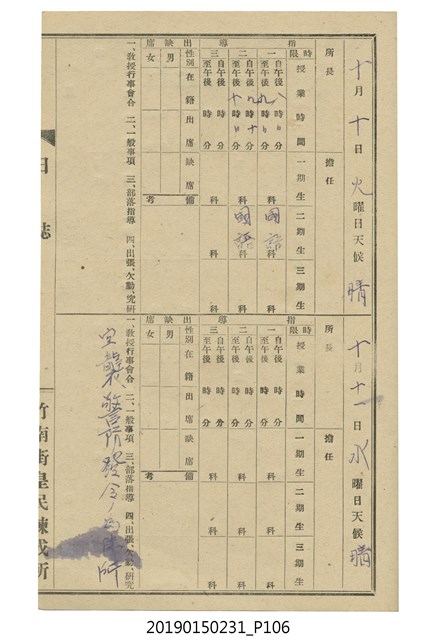 十月十日 火曜日 天候 晴
所長 擔任
指導
時限 授業時間 一期生 二期生 三期生
一 自午後八時分 至午後九時分 科 國語科 科
二 自午後九時十分 至午後十時十分 科 國語科 科
三 自午後時分 至午後時分 科 科 科
出缺席
性別 在籍 出席 缺席 備考
男
女
一、教授行事會合 二、一般事項 三、部落指導 四、出張、欠勤、究研
十月十一日 水曜日 天候 晴
所長 擔任
指導
時限 授業時間 一期生 二期生 三期生
一 自午後時分 至午後時分 科 科 科
二 自午後時分 至午後時分 科 科 科
三 自午後時分 至午後時分 科 科 科
出缺席
性別 在籍 出席 缺席 備考
男
女
一、教授行事會合 二、一般事項 三、部落指導 四、出張、欠勤、究研
空襲警備發令
日誌
竹南街皇民鍊成所
20190150231_P106